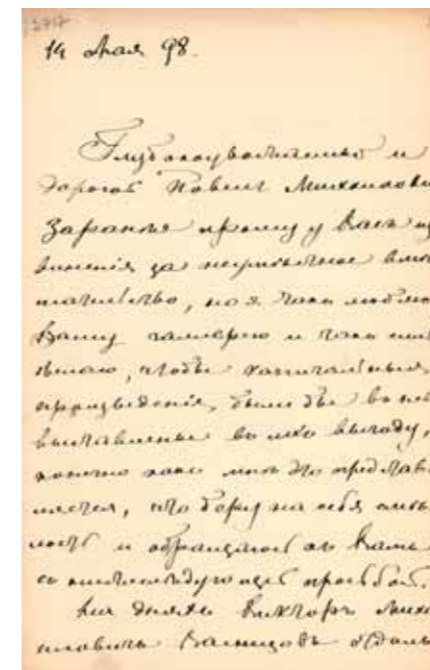 14 Мая 98.
Глубокоуважаемый и
дорогой Павелъ Михайлови
Заранѣе прошу у Васъ из
виненія за непрошенное вмѣ
шательство, но я такъ люблю
Вашу галлерею и такъ
желаю, чтобы капитальныя
произведенія были бы въ ней
выставлены во всю выгоду,
конечно какъ мнѣ это представ
ляется, что беру на себя смѣ
лость и обращаюсь къ Вамъ
со нижеслѣдующей просьбой.
На дняхъ Викторъ Миха
йловичъ Васнецовъ